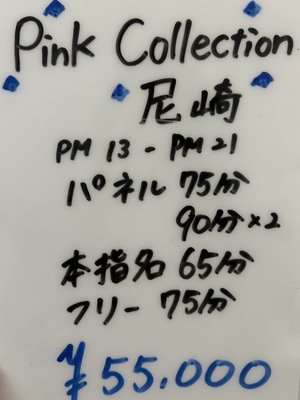 Pink Collection
尼崎
PM 13 - PM 21
パネル 75分
90分×2
本指名 65分
フリー 75分
¥55.000